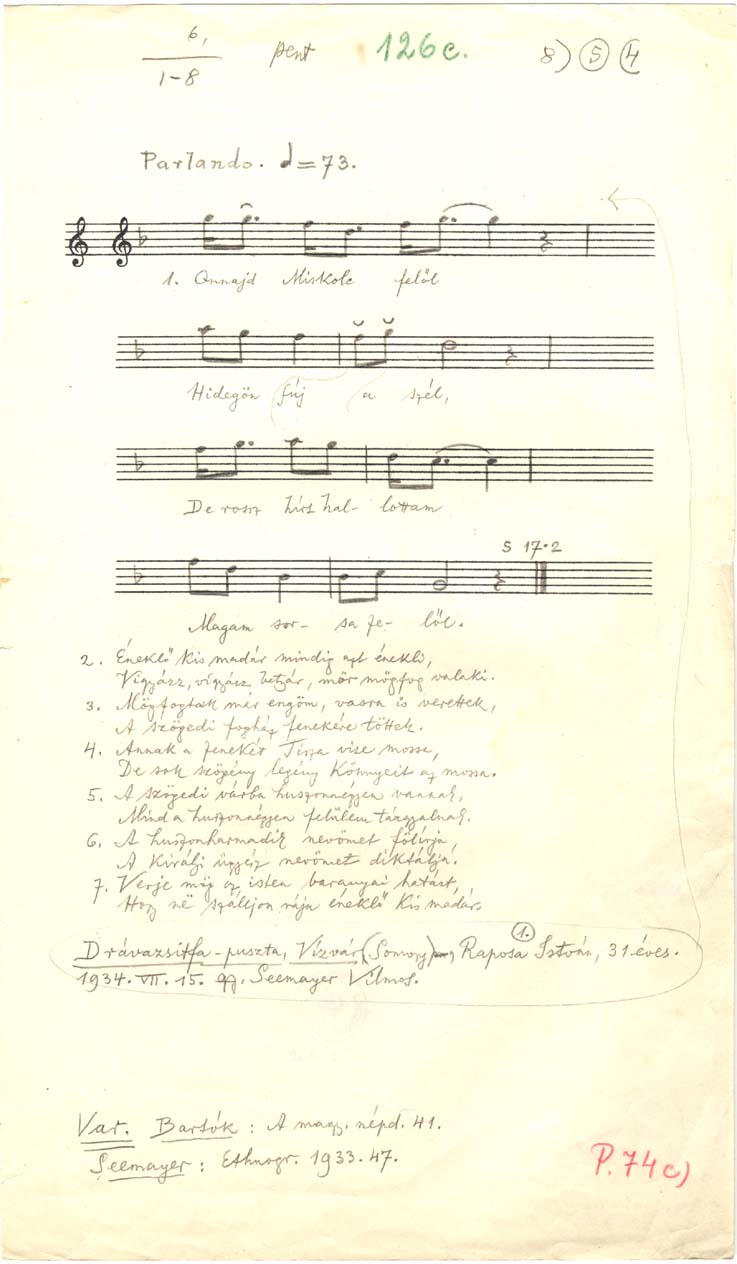 6,
1-8
pent
126c.
8) 5 4
Parlando. =73.
1. Onnajd Miskolc felől
Hidegön fúj a szél,
De rossz hírt hal- lottam
S 17.2
Magam sor- sa fe- lől.
2. Éneklő kis madár mindig azt énekli,
Vigyázz, vigyázz betyár, mör mögfog valaki.
3. Mögfogtak már engöm, vasra is verettek,
A szögedi fogház fenekére töttek.
4. Annak a fenekét Tisza vize mossa,
De sok szögény legény könnyeit az mossa.
5. A szögedi várba huszonnégyen vannak,
Mind a huszonnégyen felűlem tárgyalnak.
6. A huszonharmadik nevömet fölírja,
A királyi ügyész nevömet diktálja.
7. Verje mög az isten baranyai határt,
Hogy në szálljon rája éneklő kis madár.
Drávazsitfa-puszta, Vízvár (Somogy) Raposa István, 31 éves.
1.
1934. VII. 15. gy. Seemayer Vilmos.
Var. Bartók: A magy. népd. 41.
Seemayer: Ethnogr. 1933. 47.
P. 74c)